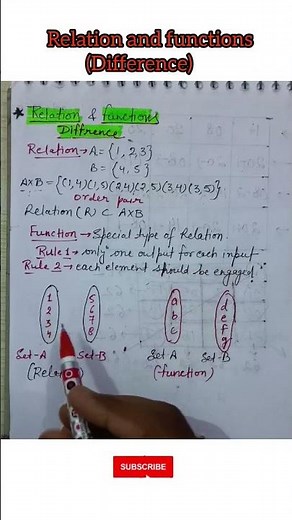 Relation and functions
(Difference)
* Relation & functions
Diffrence
Relation → A = {1, 2, 3}
B = {4, 5}
A×B = {(1,4)(1,5)(2,4)(2,5)(3,4)(3,5)}
order pair
Relation (R) ⊂ A×B
Function → Special type of Relation.
Rule 1 → only one output for each input
Rule 2 → each element should be engaged
1 5 a d
2 6 b e
3 7 c f
4 8 g
Set-A Set-B Set A Set-B
(Relat (function)
SUBSCRIBE